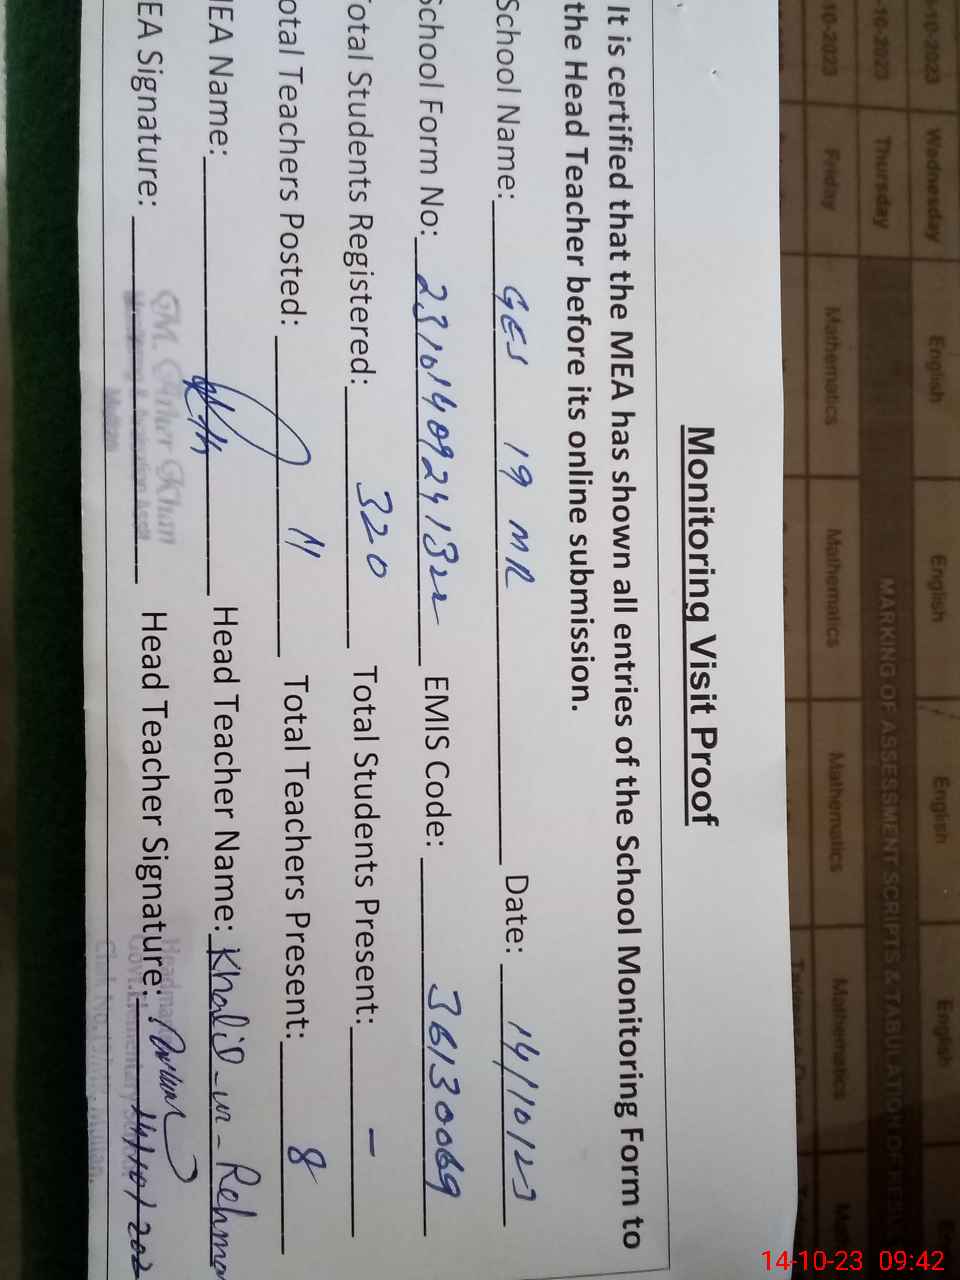 Monitoring Visit Proof
It is certified that the MEA has shown all entries of the School Monitoring Form to
the Head Teacher before its online submission.
School Name: GES 19 MR Date: 14/10/23
School Form No: 23101409241322 EMIS Code: 36130069
Total Students Registered: 320 Total Students Present: -
otal Teachers Posted: 11 Total Teachers Present: 8
EA Name: Head Teacher Name: Khalid-ur-Rehma
EA Signature: Head Teacher Signature: 14/10/202
M. Ather Khan
-10-2023 Wednesday English English English English
-10-2023 Thursday MARKING OF ASSESSMENT SCRIPTS & TABULATION OF
10-2023 Friday Mathematics Mathematics Mathematics Mathematics
14-10-23 09:42